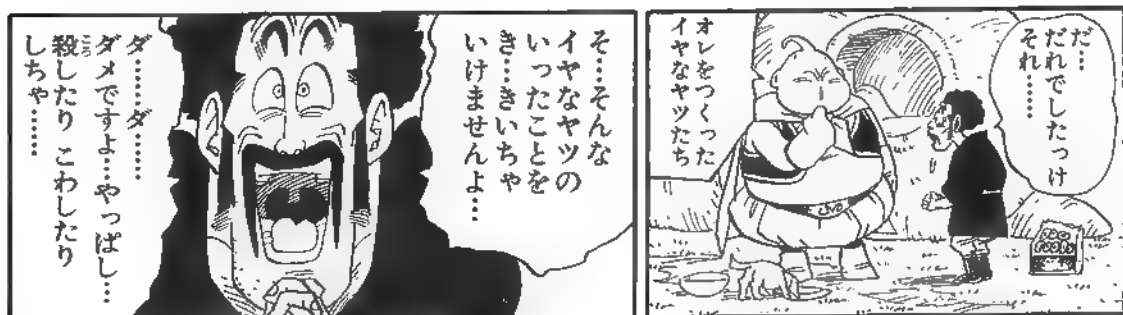 だ…
だれでしたっけ
それ……
オレをつくった
イヤなヤツたち
そ…そんな
イヤなヤツの
いったことを
き…きいちゃ
いけませんよ…
ダ……ダ……
ダメですよ…やっぱし…
殺したり こわしたり
しちゃ……